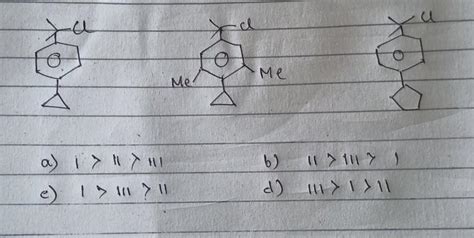 Cl Cl Cl
Me Me
a) I > II > III b) II > III > I
c) I > III > II d) III > I > II